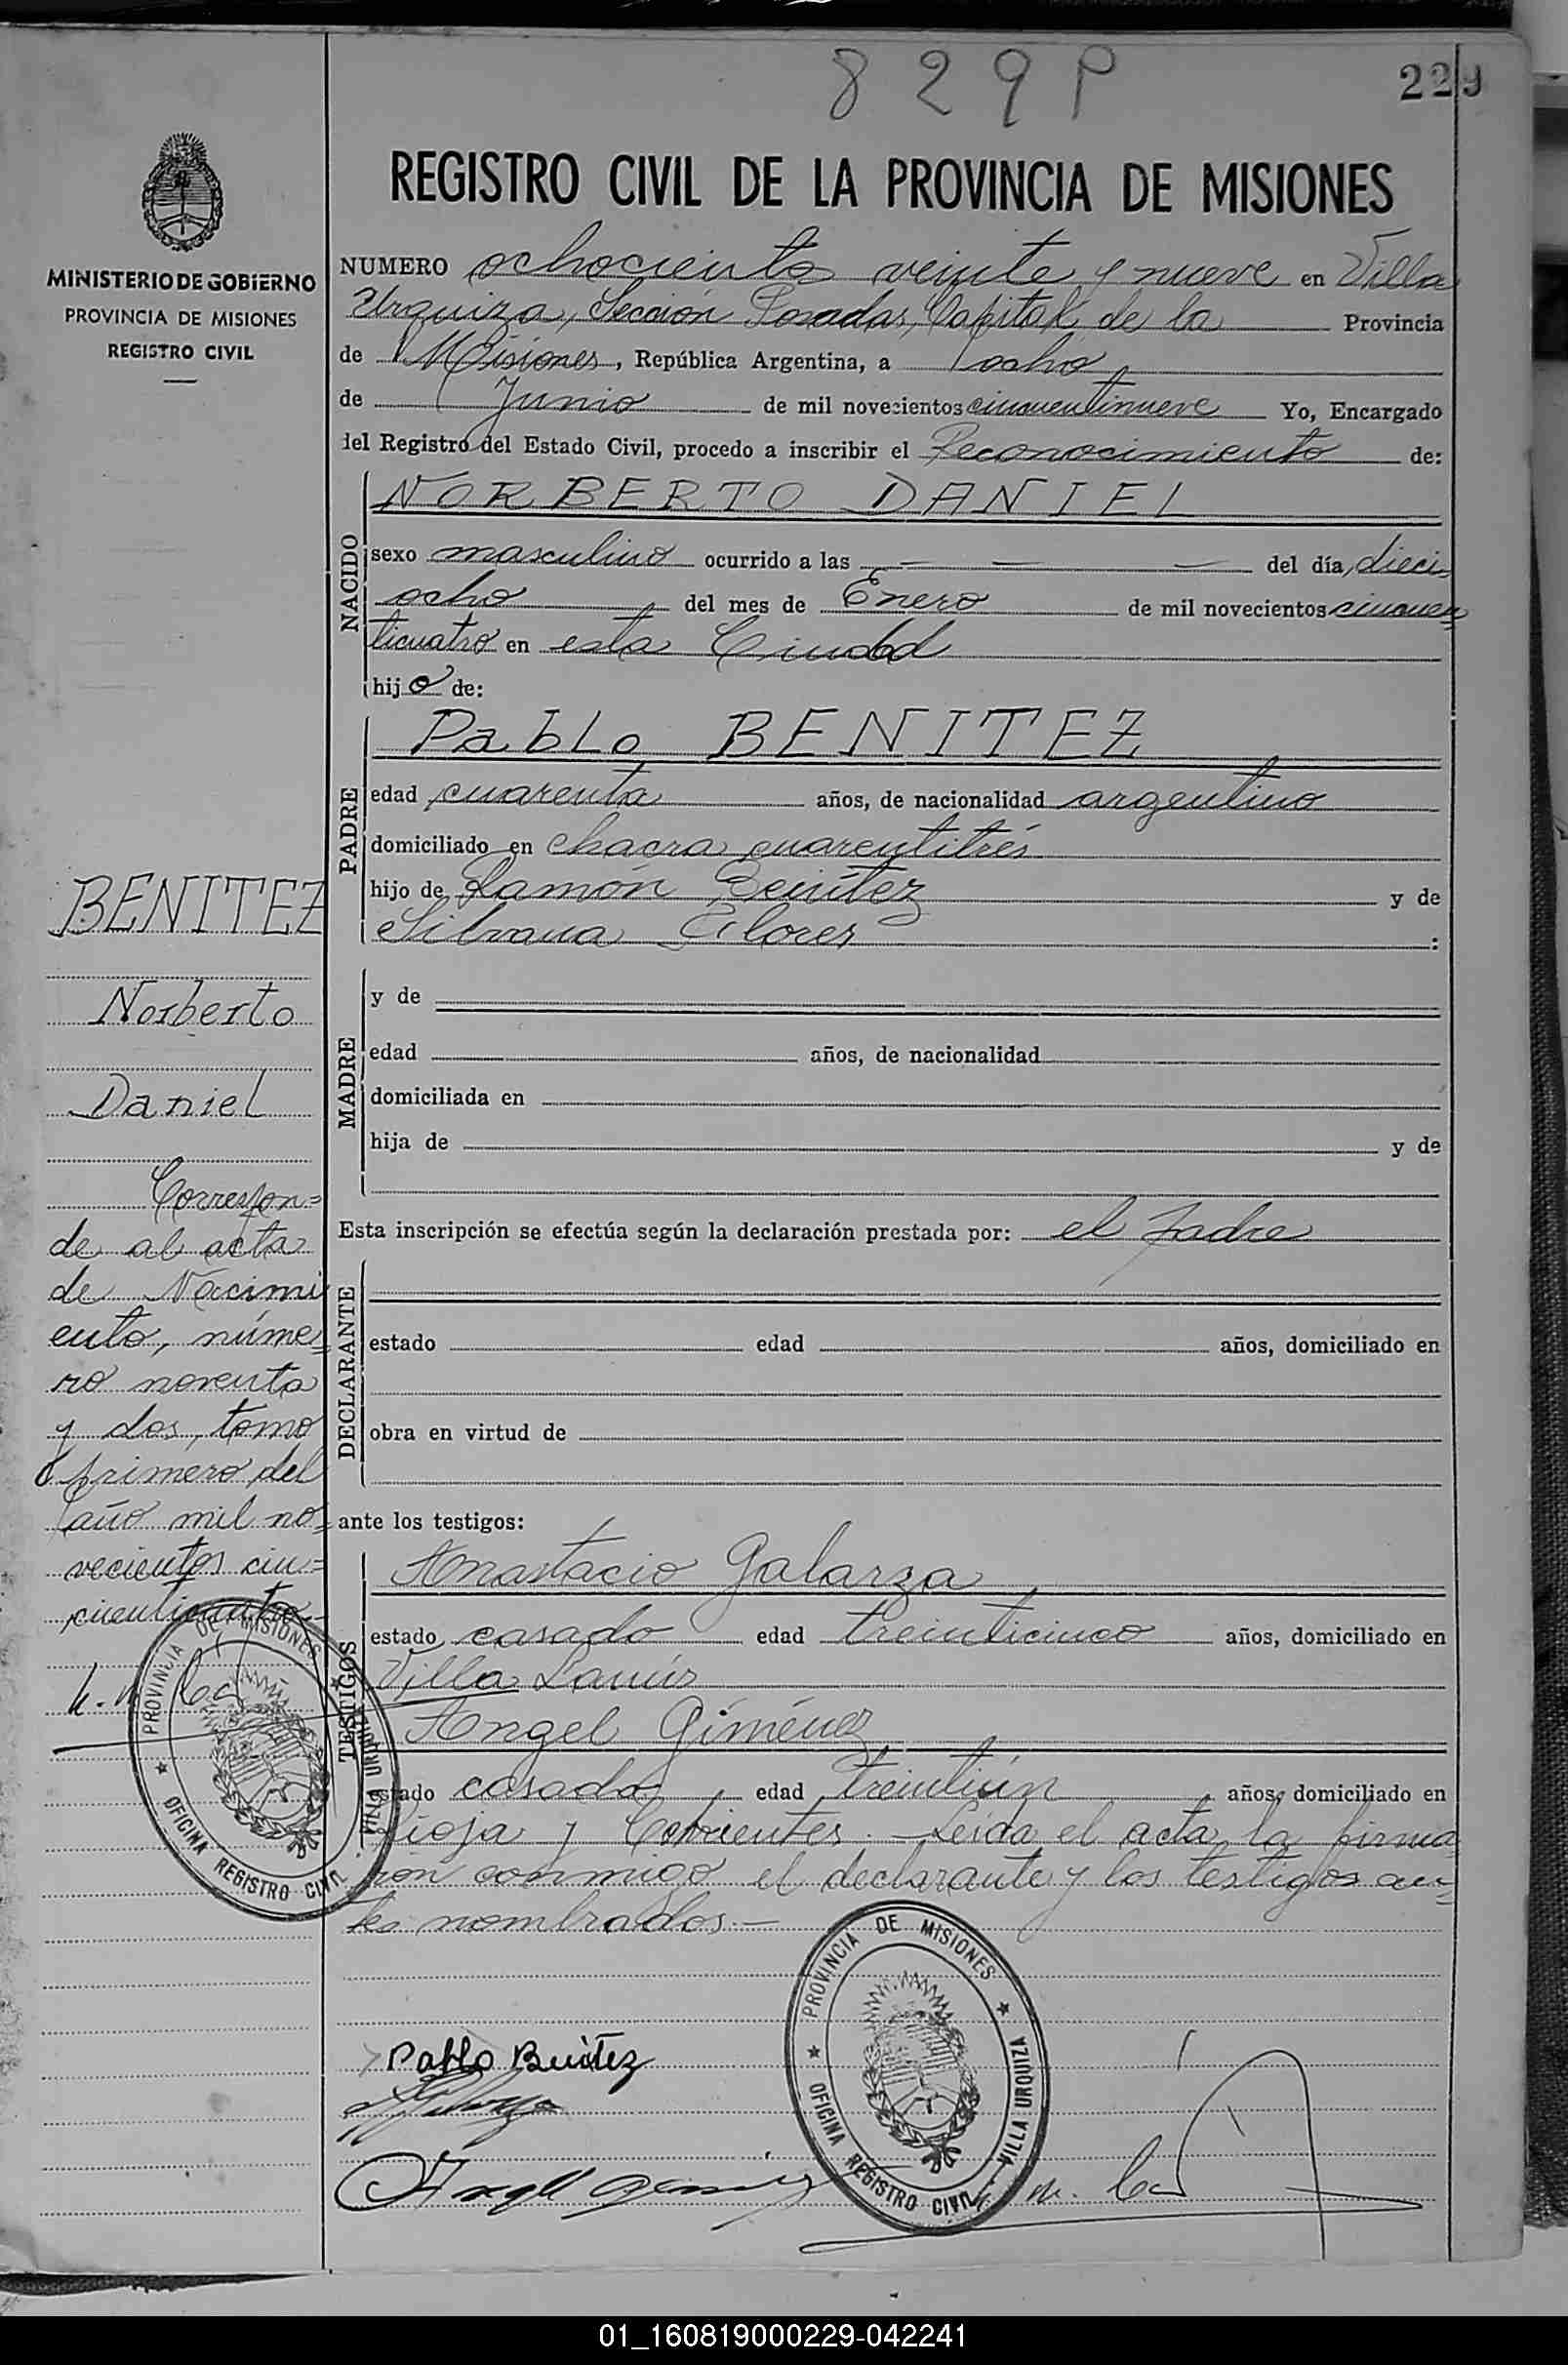 829P
229
MINISTERIO DE GOBIERNO
PROVINCIA DE MISIONES
REGISTRO CIVIL
REGISTRO CIVIL DE LA PROVINCIA DE MISIONES
NUMERO ochocientos veinte y nueve en Villa
Urquiza, Sección Posadas, Capital de la Provincia
de Misiones, República Argentina, a ocho
de Junio de mil novecientos cincuentinueve Yo, Encargado
del Registro del Estado Civil, procedo a inscribir el Reconocimiento de:
NACIDO
NORBERTO DANIEL
sexo masculino ocurrido a las — — — del día dieci-
ocho del mes de Enero de mil novecientos cincuen=
ticuatro en esta Ciudad
hijo de:
PADRE
Pablo BENITEZ
edad cuarenta años, de nacionalidad argentino
domiciliado en chacra cuarentitrés
hijo de Ramón Benítez y de
Silvana Flores :
MADRE
y de
edad años, de nacionalidad
domiciliada en
hija de y de
Esta inscripción se efectúa según la declaración prestada por: el padre
DECLARANTE
estado edad años, domiciliado en
obra en virtud de
ante los testigos:
TESTIGOS
Anastacio Galarza
estado casado edad treinticinco años, domiciliado en
Villa Lanús
Angel Giménez
estado casado edad treintiún años, domiciliado en
Rioja y Corrientes. — Leída el acta, la firma
ron conmigo el declarante y los testigos an-
tes nombrados.—
Pablo Benítez
Angel Gimenez
BENITEZ
Norberto
Daniel
Correspon=
de al acta
de Nacimi
ento, núme=
ro noventa
y dos, tomo
primero del
año mil no=
vecientos cin=
cuenticuatro.
PROVINCIA DE MISIONES
OFICINA REGISTRO CIVIL - VILLA URQUIZA
PROVINCIA DE MISIONES
OFICINA REGISTRO CIVIL - VILLA URQUIZA
01_160819000229-042241